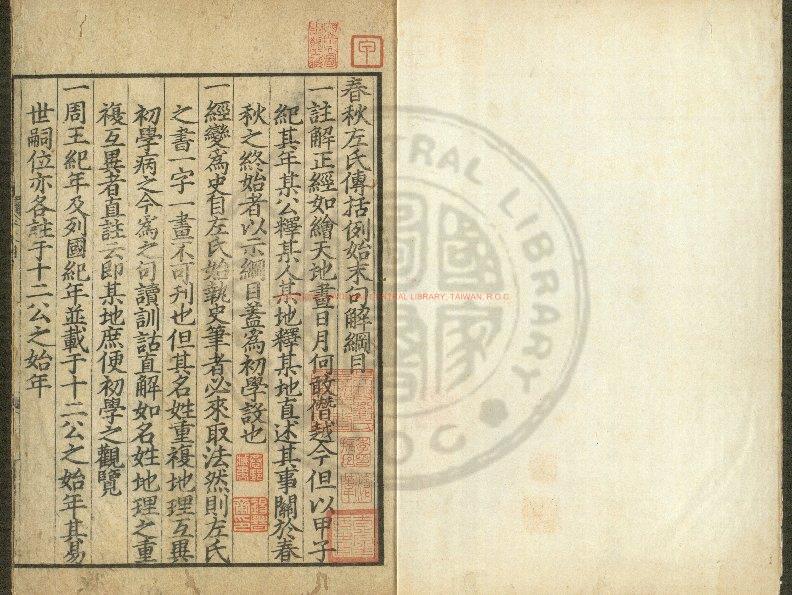 春秋左氏傳括例始末句解綱目
一註解正經如繪天地畫日月何敢僭越今但以甲子
紀其年某公釋某人某地釋某地直述其事關於春
秋之終始者以示綱目蓋為初學設也
一經變為史自左氏始執史筆者必來取法然則左氏
之書一字一畫不可刋也但其名姓重複地理互異
初學病之今為之句讀訓詁直解如名姓地理之重
複互異者直註云即某地庶便初學之觀覽
一周王紀年及列國紀年並載于十二公之始年其易
世嗣位亦各註于十二公之始年
NATIONAL CENTRAL LIBRARY, TAIWAN, R.O.C.